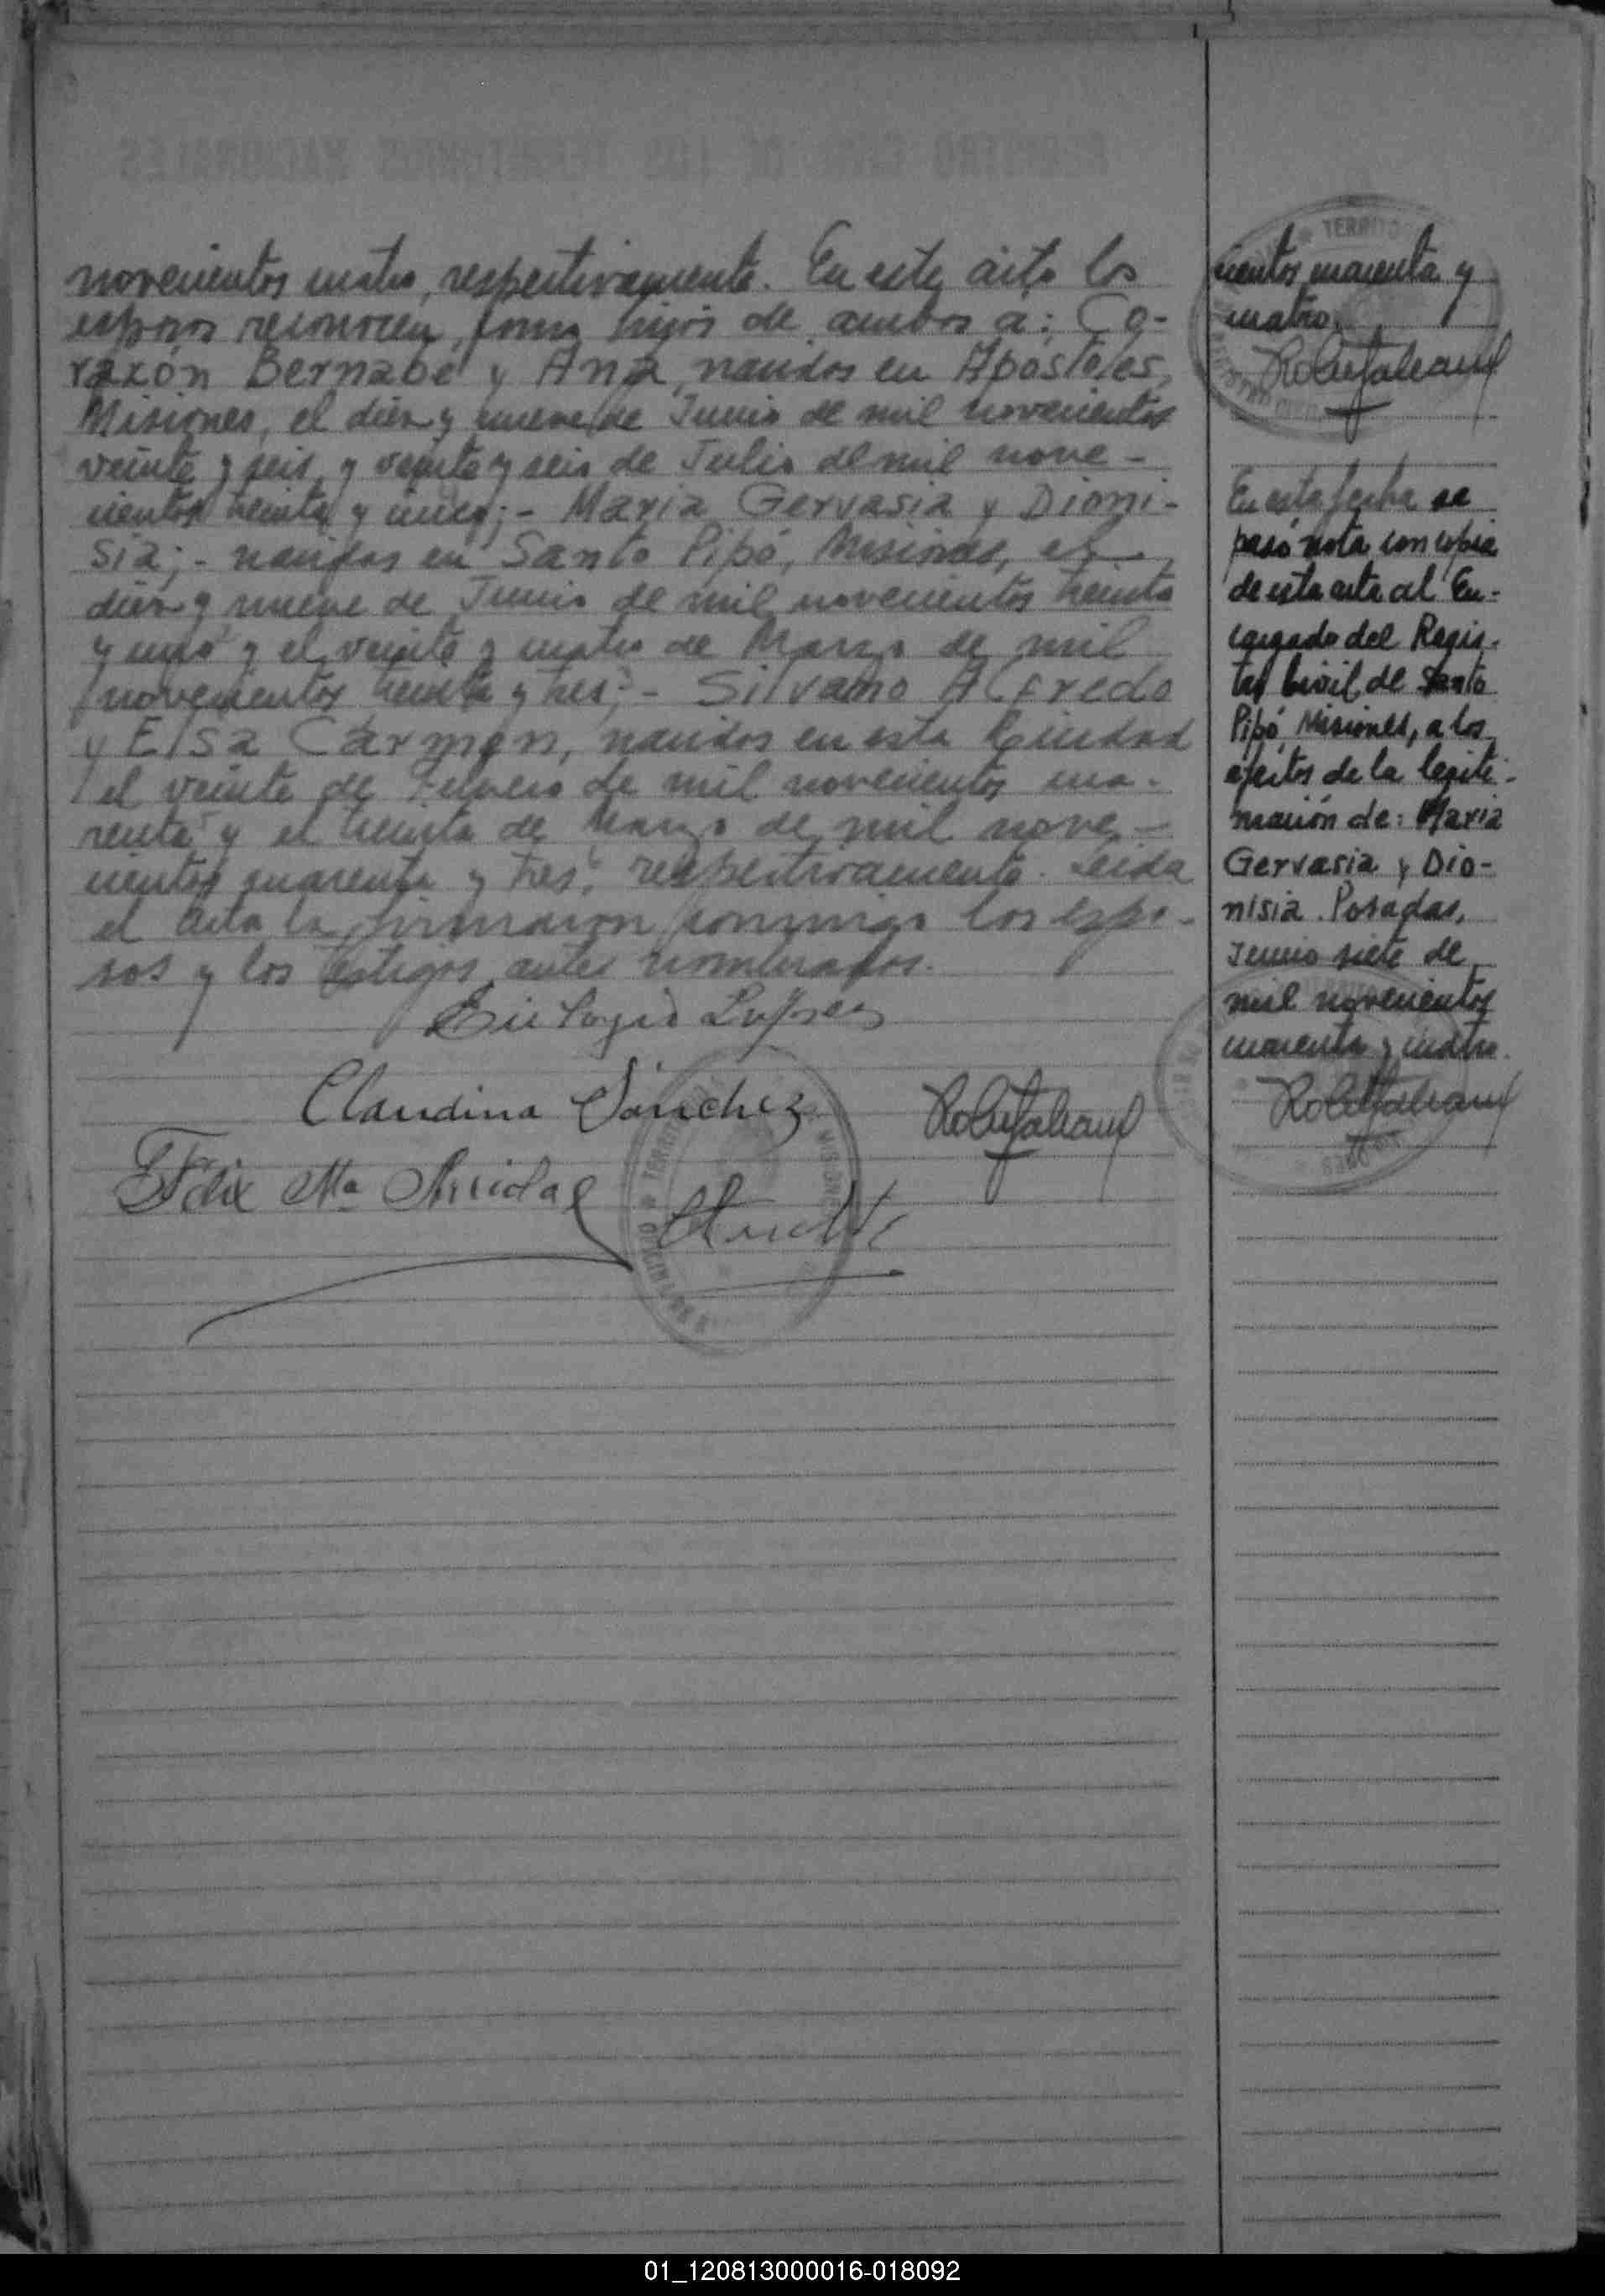 novecientos cuatro, respectivamente. En este acto los
esposos reconocen, como hijos de ambos a: Co-
razón Bernabé y Ana, nacidos en Apóstoles,
Misiones, el diez y nueve de Junio de mil novecientos
veinte y seis, y veinte y seis de Julio de mil nove-
cientos treinta y cinco;- María Gervasia y Dioni-
sia;- nacidas en Santo Pipó, Misiones, el
diez y nueve de Junio de mil novecientos treinta
y uno y el veinte y cuatro de Marzo de mil
novecientos treinta y tres;- Silvano Alfredo
y Elsa Carmen, nacidos en esta Ciudad
el veinte de Febrero de mil novecientos cua-
renta y el treinta de Marzo de mil nove-
cientos cuarenta y tres, respectivamente. Leída
el acta la firmaron conmigo los espo-
sos y los testigos antes nombrados.
Eulogio Lopez
Claudina Sánchez
Felix Ma
cientos cuarenta y
cuatro.
En esta fecha se
pasó nota con copia
de esta acta al En-
cargado del Regis-
tro Civil de Santo
Pipó, Misiones, a los
efectos de la legiti-
mación de: María
Gervasia y Dio-
nisia. Posadas,
Junio siete de
mil novecientos
cuarenta y cuatro.
01_120813000016-018092